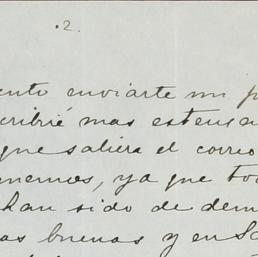 .2.
ento enviarte un p
cribiré mas estensa
que saliera el correo
nemos, ya que to
han sido de dem
as buenas y en Sa